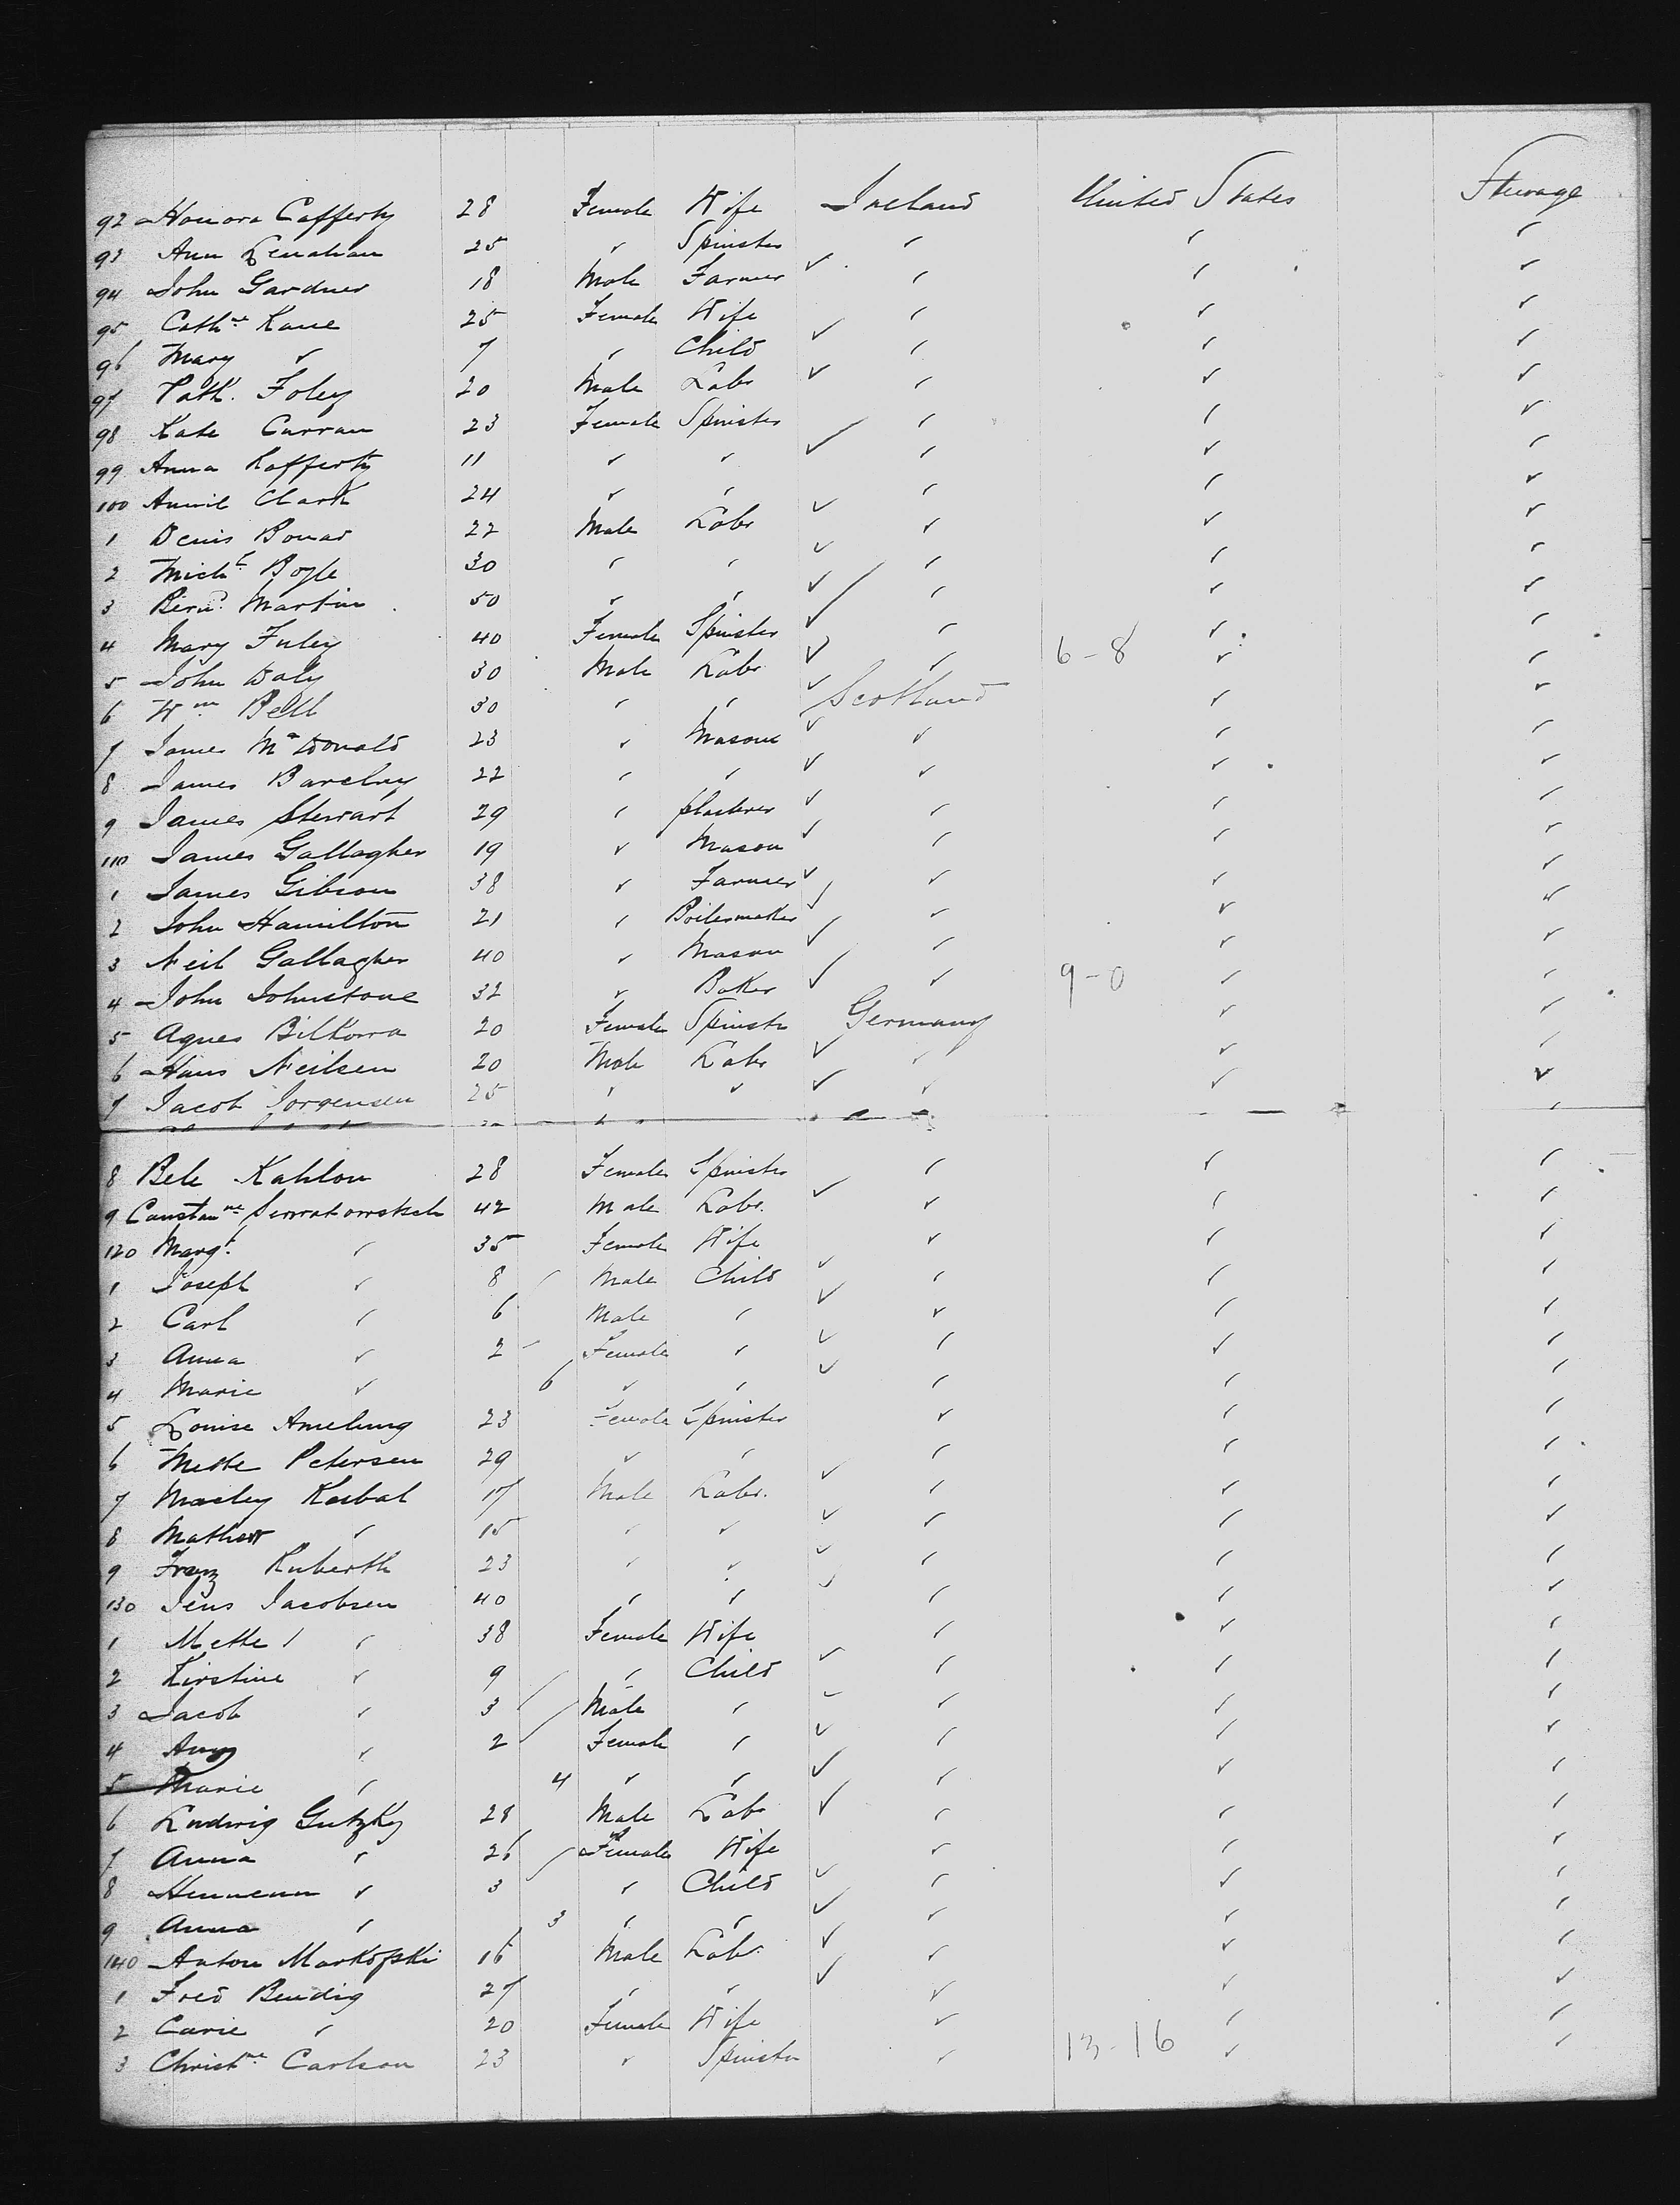 92 Honora Cafferty 28 Female Wife Ireland United States Steerage
93 Ann Lenahan 25 " Spinster " " "
94 John Gardner 18 Male Farmer " " "
95 Cathne Kane 25 Female Wife " " "
96 Mary " 7 " Child " " "
97 Patk. Foley 20 Male Labr " " "
98 Kate Curran 23 Female Spinster " " "
99 Anna Rafferty 11 " " " " "
100 Annie Clark 24 " " " " "
1 Denis Bonar 22 Male Labr " " "
2 Michl Boyle 30 " " " " "
3 Bernd. Martin 50 " " " " "
4 Mary Fuley 40 Female Spinster " " "
5 John Daly 30 Male Labr " 6-8 " "
6 Wm Bell 30 " " Scotland " "
7 James McDonald 23 " Mason " " "
8 James Barclay 22 " " " " "
9 James Stewart 29 " plasterer " " "
110 James Gallagher 19 " Mason " " "
1 James Gibson 38 " Farmer " " "
2 John Hamilton 21 " Boilermaker " " "
3 Neil Gallagher 40 " Mason " " "
4 John Johnstone 32 " Baker " 9-0 " "
5 Agnes Bilkorra 20 Female Spinstr Germany " "
6 Hans Neilsen 20 Male Labr " " "
7 Jacob Jorgensen 25 " " " " "
8 Bele Kahlon 28 Female Spinster " " "
9 Constanne 42 Male Labr. " " "
120 Margt. " 35 Female Wife " " "
1 Joseph " 8 Male Child " " "
2 Carl " 6 Male " " " "
3 Anna " 2 Female " " " "
4 Marie " 6 " " " " "
5 Louise Amelung 23 Female Spinster " " "
6 Mette Petersen 29 " " " " "
7 Macley Kasbal 17 Male Labr. " " "
8 Mathew " 15 " " " " "
9 Franz Ruberth 23 " " " " "
130 Jens Jacobsen 40 " " " " "
1 Mette " 38 Female Wife " " "
2 Kirstine " 9 " Child " " "
3 Jacob " 3 Male " " " "
4 Any " 2 Female " " " "
5 Marie " 4 " " " " "
6 Ludwig Gutzky 28 Male Labr " " "
7 Anna " 26 Female Wife " " "
8 " 3 " Child " " "
9 Anna " 3 " " " " "
140 Anton Markofski 16 Male Labr " " "
1 Fred Bendig 27 " " " " "
2 Carie " 20 Female Wife " " "
3 Christne Carlson 23 " Spinster " 13-16 " "